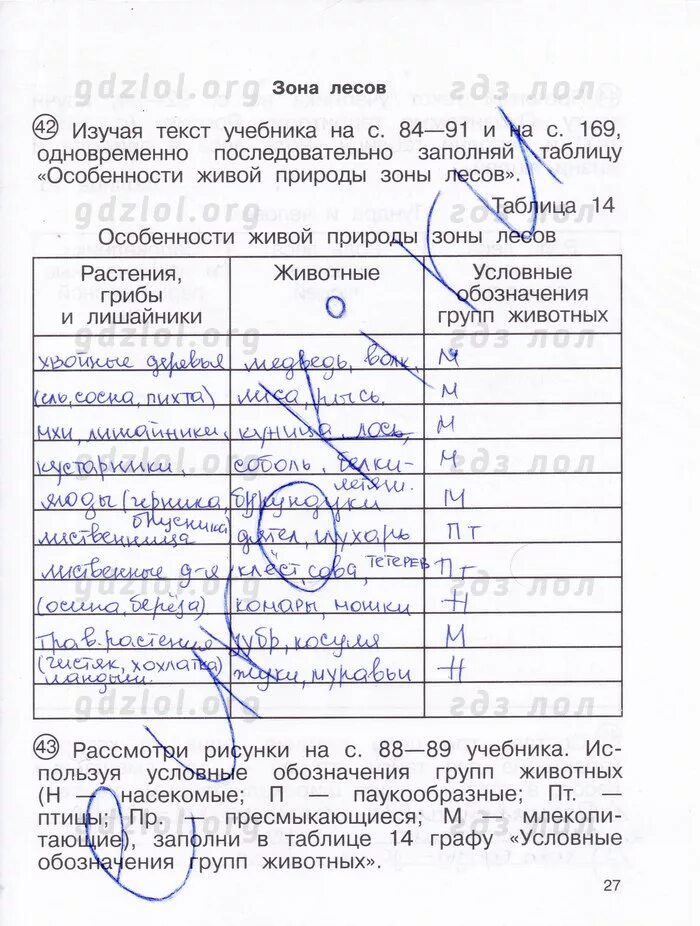 gdzlol.org гдз лол
Зона лесов
42 Изучая текст учебника на с. 84—91 и на с. 169,
одновременно последовательно заполняй таблицу
«Особенности живой природы зоны лесов».
gdzlol.org гдз лол
Таблица 14
Особенности живой природы зоны лесов
Растения, грибы и лишайники | Животные | Условные обозначения групп животных
gdzlol.org гдз лол
хвойные деревья | медведь, волк, | М
(ель, сосна, пихта) | лиса, рысь. | М
gdzlol.org гдз лол
мхи, лишайники, | куница, лось, | М
кустарники, | соболь, белки- | М
gdzlol.org гдз лол
летяги.
ягоды (черника, | бурундуки | М
брусника)
лиственница | дятел, глухарь | Пт
gdzlol.org гдз лол
лиственные д-я | клёст, сова, тетерев | Пт
(осина, берёза) | комары, мошки | Н
gdzlol.org гдз лол
трав. растения | зубр, косуля | М
(чистяк, хохлатка) | жуки, муравьи | Н
ландыш.
gdzlol.org гдз лол
43 Рассмотри рисунки на с. 88—89 учебника. Ис-
пользуя условные обозначения групп животных
(Н — насекомые; П — паукообразные; Пт. —
птицы; Пр. — пресмыкающиеся; М — млекопи-
gdzlol.org гдз лол
тающие), заполни в таблице 14 графу «Условные
обозначения групп животных».
27